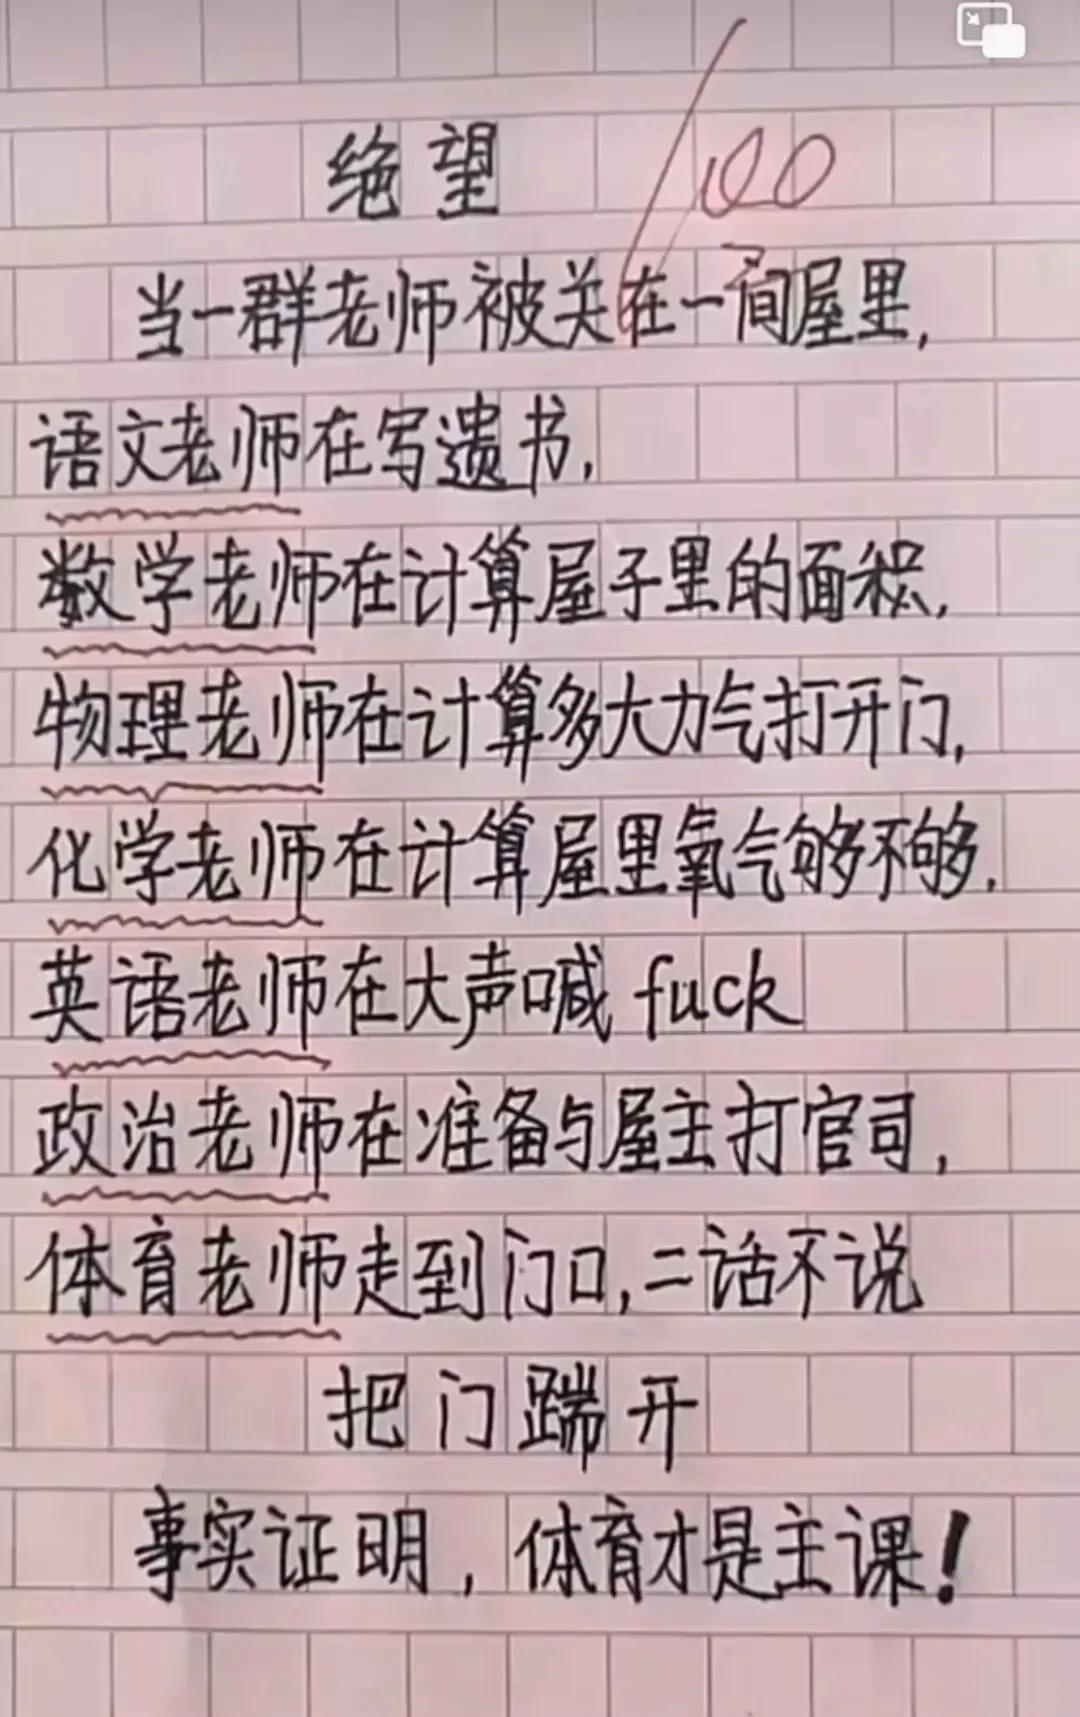 绝望
100
当一群老师被关在一间屋里,
语文老师在写遗书,
数学老师在计算屋子里的面积,
物理老师在计算多大力气打开门,
化学老师在计算屋里氧气够不够.
英语老师在大声喊 fuck
政治老师在准备与屋主打官司,
体育老师走到门口,二话不说
把门踹开
事实证明,体育才是主课!